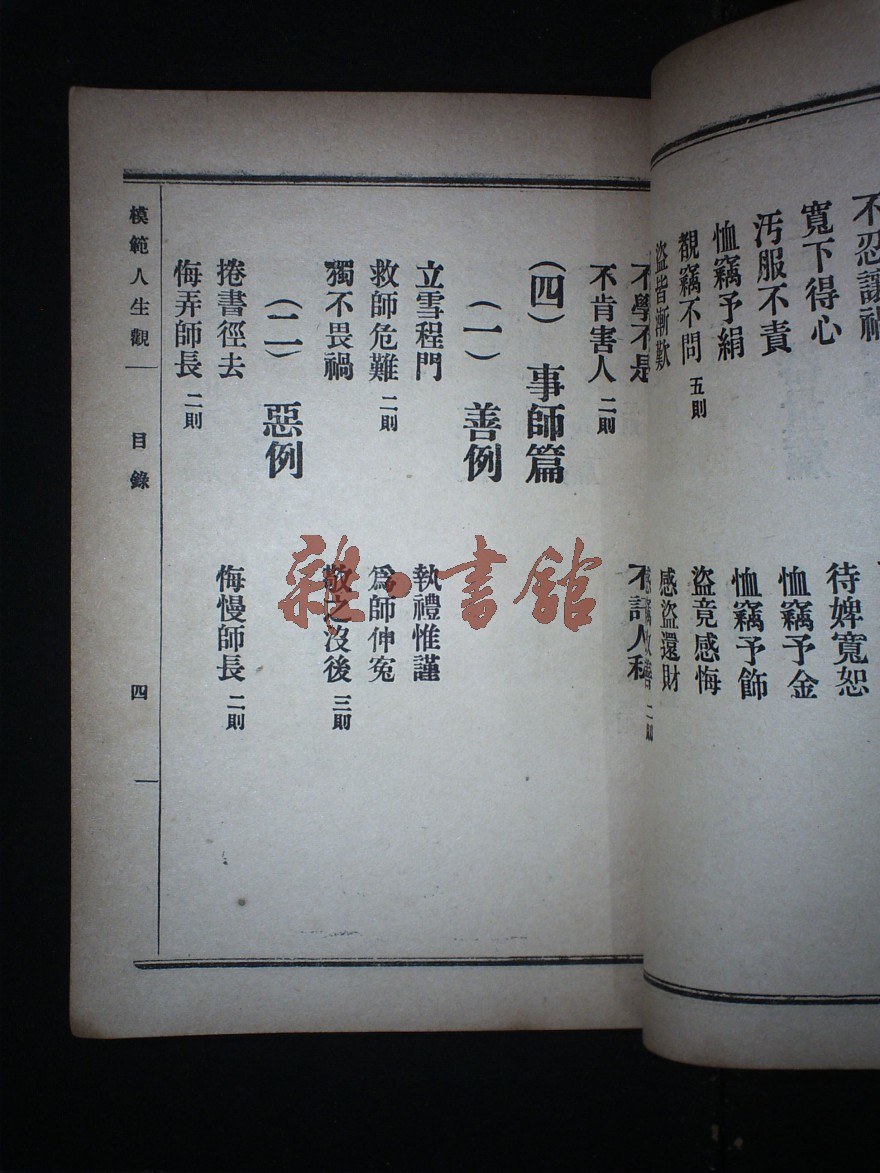 不忍讓禍
寬下得心
待婢寬恕
汚服不責
恤竊予金
恤竊予絹
恤竊予飾
覩竊不問 五則
盜竟感悔
盜皆慚歎
感盜還財
不學不是
不訐人私
不肯害人 二則
（四） 事師篇
（一） 善例
立雪程門
執禮惟謹
救師危難 二則
爲師伸寃
獨不畏禍
敬之沒後 三則
（二） 惡例
捲書徑去
侮慢師長 二則
侮弄師長 二則
模範人生觀 目錄 四
雜·書館